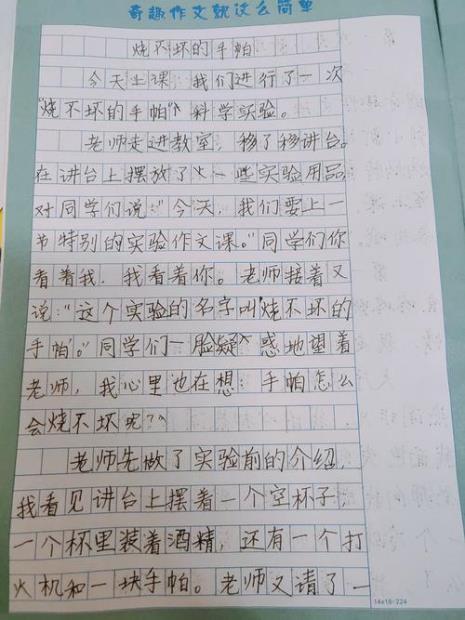 奇趣作文就这么简单
烧不坏的手帕
今天上课，我们进行了一次
“烧不坏的手帕”科学实验。
老师走进教室，移了移讲台。
在讲台上摆放了一些实验用品
对同学们说：“今天，我们要上一
节特别的实验作文课。”同学们你
看着我，我看着你。老师接着又
说：“这个实验的名字叫‘烧不坏的
手帕’。”同学们一脸疑惑地望着
老师，我心里也在想：手帕怎么
会烧不坏呢？
老师先做了实验前的介绍，
我看见讲台上摆着一个空杯子，
一个杯里装着酒精，还有一个打
火机和一块手帕。老师又请了一
14x16=224